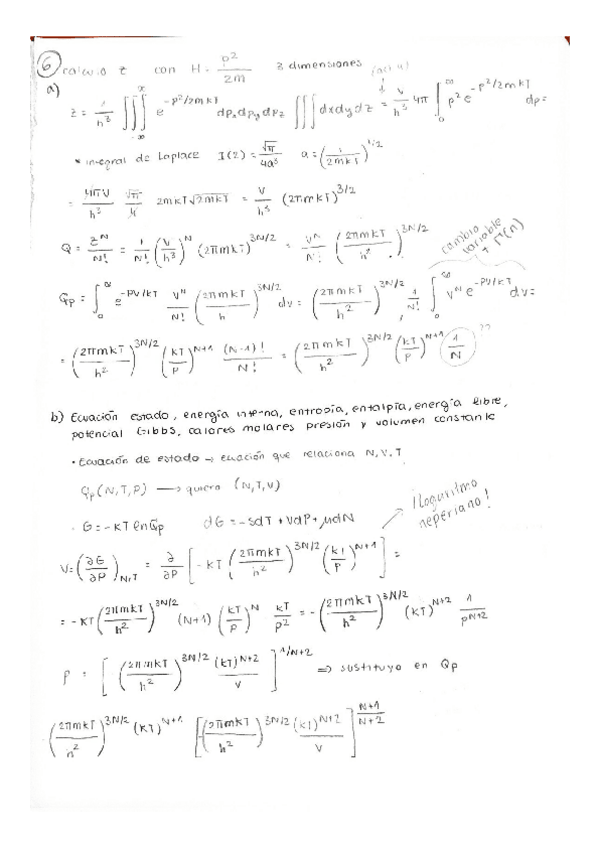 ⑥ calculo z con H = p²/2m 3 dimensiones
a) z = 1/h³ ∭_{-∞}^{∞} e^{-p²/2mkT} dpₓdp_ydp_z ∭ dxdydz = V/h³ 4π ∫₀^∞ p² e^{-p²/2mkT} dp =
* integral de Laplace I(2) = √π/4a³ a = (1/2mkT)^{1/2}
= 4πV/h³ √π/4 2mkT√2mkT = V/h³ (2πmkT)^{3/2}
Q = z^N/N! = 1/N! (V/h³)^N (2πmkT)^{3N/2} = V^N/N! (2πmkT/h²)^{3N/2}
cambio variable + Γ(n)
Qp = ∫₀^∞ e^{-PV/kT} V^N/N! (2πmkT/h)^{3N/2} dv = (2πmkT/h²)^{3N/2} 1/N! ∫₀^∞ V^N e^{-PV/kT} dv =
= (2πmkT/h²)^{3N/2} (kT/P)^{N+1} (N-1)!/N! = (2πmkT/h²)^{3N/2} (kT/P)^{N+1} (1/N) ??
b) Ecuación estado, energía interna, entropía, entalpía, energía libre,
potencial Gibbs, calores molares presión y volumen constante
· Ecuación de estado → ecuación que relaciona N, V, T
Qp (N,T,P) ⟶ quiero (N,T,V)
· G = -KT ln Qp dG = -SdT + Vdp + μdN
¡Logaritmo neperiano!
V = (∂G/∂P)_{N,T} = ∂/∂P [-kT (2πmkT/h²)^{3N/2} (kT/P)^{N+1}] =
= -KT (2πmkT/h²)^{3N/2} (N+1) (kT/P)^N kT/P² = -(2πmkT/h²)^{3N/2} (kT)^{N+2} 1/P^{N+2}
P = [(2πmkT/h²)^{3N/2} (kT)^{N+2}/V]^{1/N+2} ⇒ sustituyo en Qp
(2πmkT/h²)^{3N/2} (kT)^{N+1} [(2πmkT/h²)^{3N/2} (kT)^{N+2}/V]^{N+1/N+2}